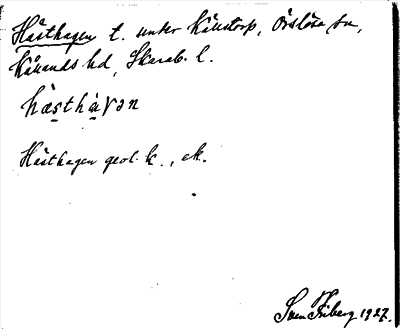 Hästhagen t. under Källstorp, Örslösa sn,
Kållands hd, Skarab. l.
hȧ̀sthȧ̀γən
Hästhagen geol. k., ek.
Sven Friberg 1927.